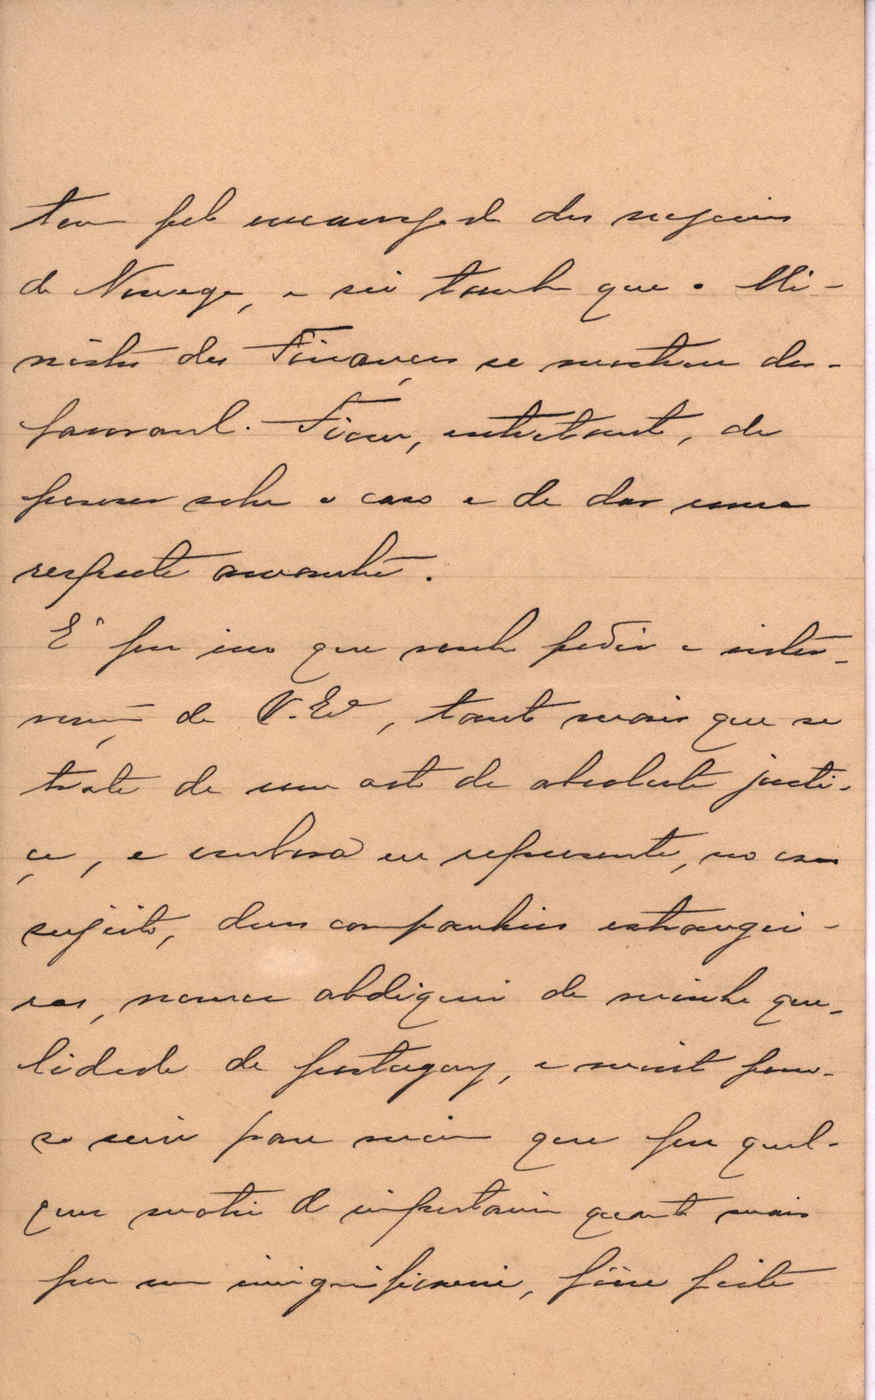 tem pelo encarregado dos negocios
de Noruega, e sei tambem que o Mi-
nistro das Finanças se mostrou des-
favoravel. Ficou, entretanto, de
pensar sobre o caso e de dar uma
resposta amanhã.
É por isso que venho pedir a inter-
venção de V. Exª, tanto mais que se
trata de um acto de absoluta justi-
ça, e embora eu represente, no caso
sujeito, duas companhias estrangei-
ras, nunca abdiquei da minha qua-
lidade de portuguez, e muito peno-
so seria para mim que por qual-
quer motivo de importancia quanto mais
por uma insignificancia, fosse feita